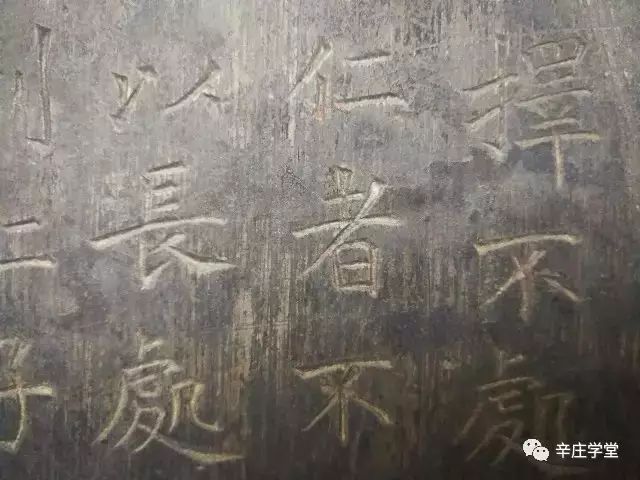 擇不處
仁者不
以長處
子
辛庄学堂